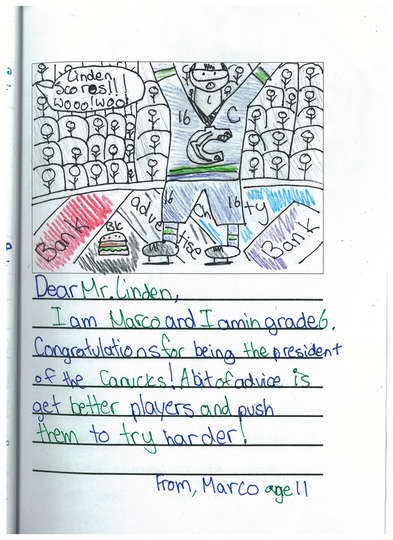 Linden
Scores!!!
Wooo!woo!
16 C
16 16
Bank
BK
adve
ty
Bank
Dear Mr. Linden,
I am Marco and I am in grade 6.
Congratulations for being the president
of the Canucks! A bit of advice is
get better players and push
them to try harder!
From, Marco age 11